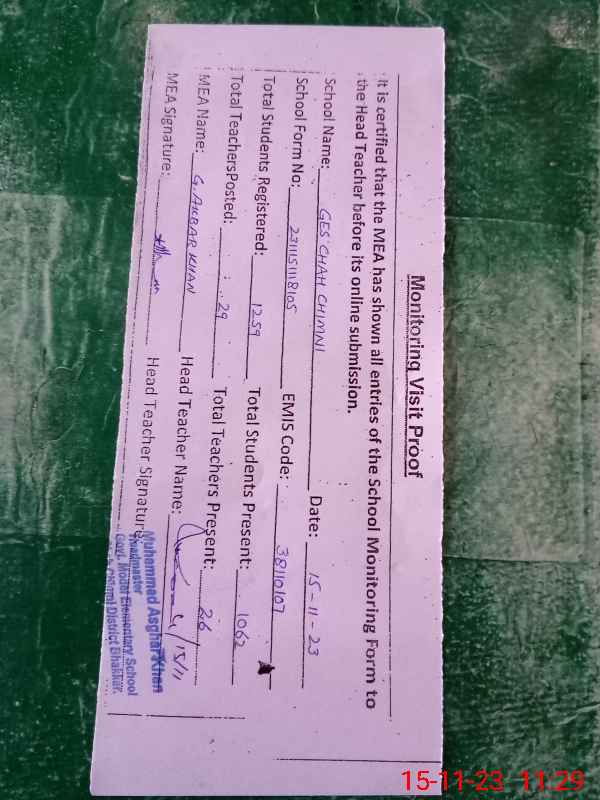 Monitoring Visit Proof
It is certified that the MEA has shown all entries of the School Monitoring Form to
the Head Teacher before its online submission.
School Name: GES CHAH CHIMNI Date: 15-11-23
School Form No: 2311151118105 EMIS Code: 38110107
Total Students Registered: 1259 Total Students Present: 1062
Total TeachersPosted: 29 Total Teachers Present: 26
MEA Name: G. AKBAR KHAN Head Teacher Name: 15/11
MEA Signature: Head Teacher Signature:
Muhammad Asghar Khan
Headmaster
Govt. Model Elementary School
Chimni District Bhakkar.
15-11-23 11:29